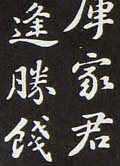 庫家君
逢勝餞